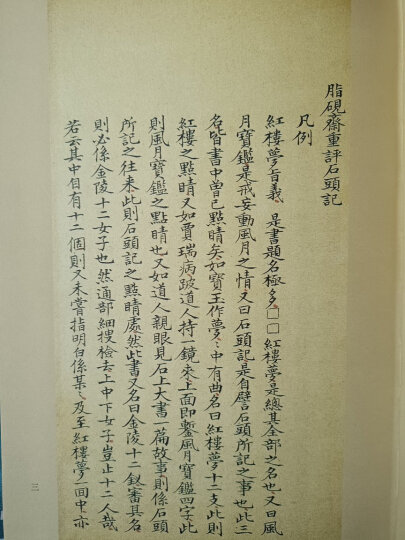 脂硯齋重評石頭記
凡例
紅樓夢旨義 是書題名極多□□紅樓夢是總其全部之名也又曰風
月寶鑑是戒妄動風月之情又曰石頭記是自譬石頭所記之事也此三
名皆書中曾已點睛矣如寶玉作夢〻中有曲名曰紅樓夢十二支此則
紅樓之點睛又如賈瑞病跛道人持一鏡來上面即鏨風月寶鑑四字此
則風月寶鑑之點睛也又如道人親眼見石上大書一篇故事則係石頭
所記之往來此則石頭記之點睛處然此書又名曰金陵十二釵審其名
則必係金陵十二女子也然通部細搜檢去上中下女子豈止十二人哉
若云其中自有十二個則又未嘗指明白係某〻及至紅樓夢一回中亦
三